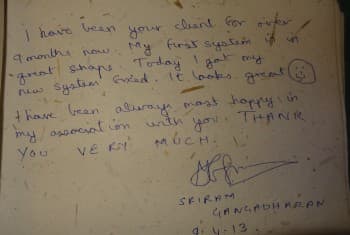 I have been your client for over
9 months now. My first system is in
great shape. Today I got my
new system fixed. It looks great
I have been always most happy, in
my association with you. THANK
YOU VERY MUCH.
SRIRAM
GANGADHARAN
9.4.13.